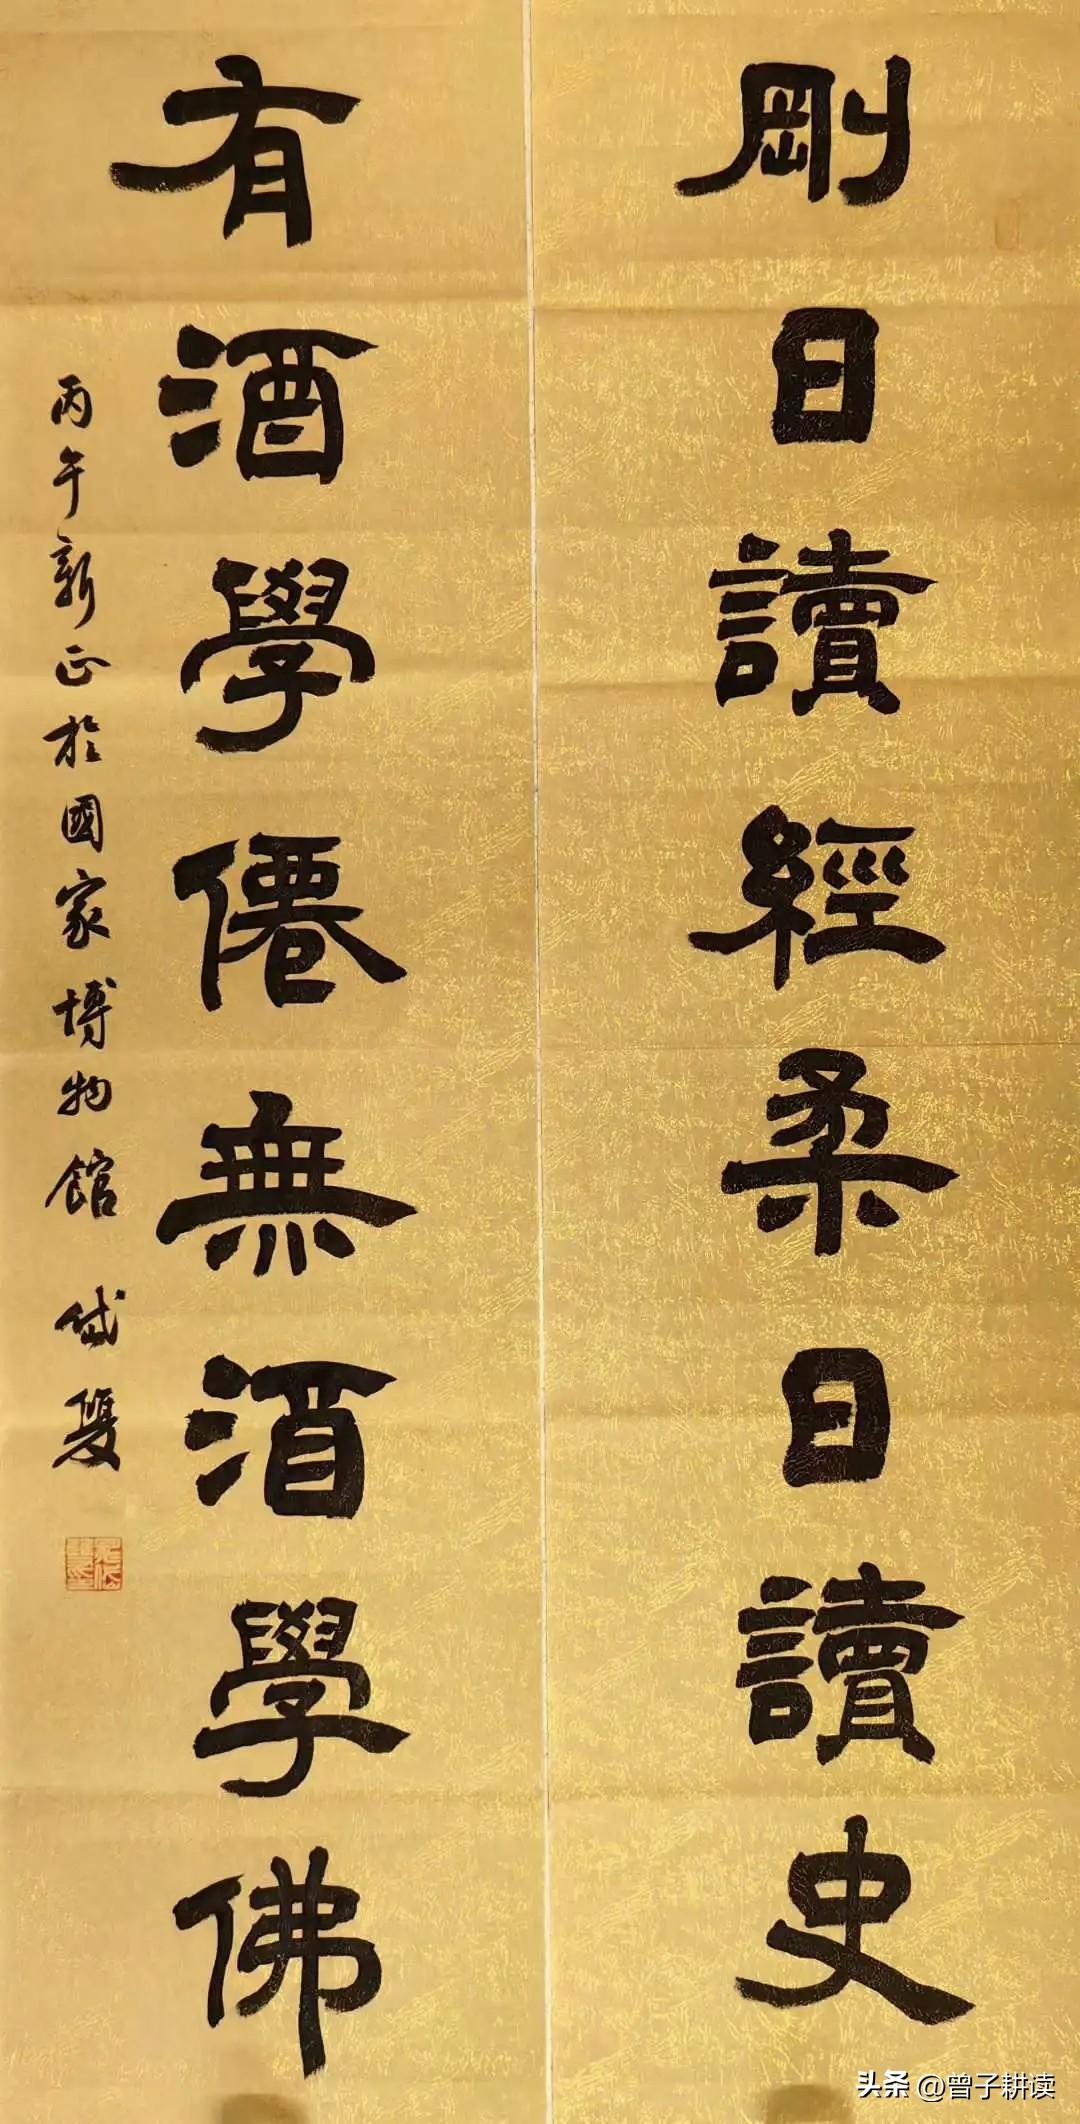 剛日讀經柔日讀史
有酒學僊無酒學佛
丙午新正於國家博物館 岱夏
头条 @曾子耕读